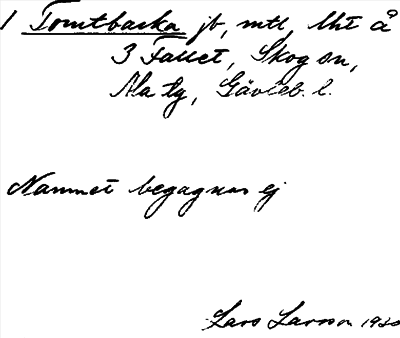 1 Tomtbacka jb, mtl, Uht å
3 Fallet, Skog sn,
Ala tg, Gävleb. l.
Namnet begagnas ej
Lars Larsson 1930